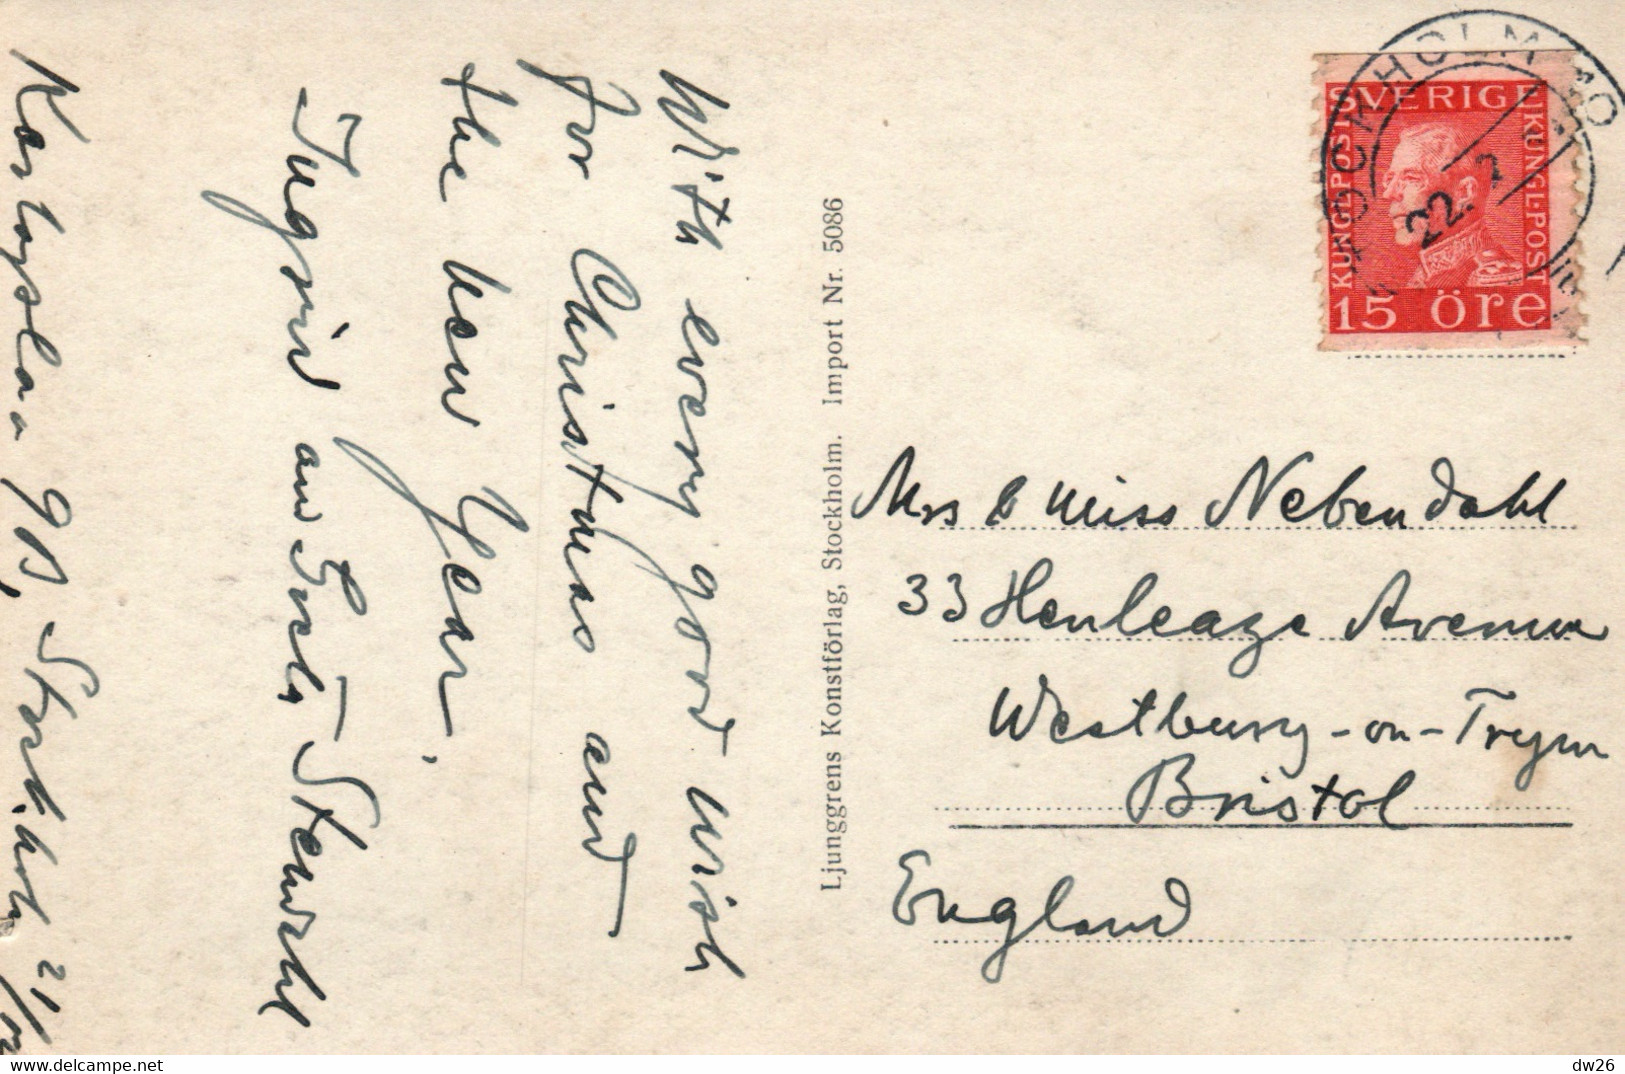 With every good wish
for Christmas and
the New Year.
Ingrid and Stendahl
Karlavägen 93, Stockholm 21/12
Ljunggrens Konstförlag, Stockholm. Import Nr. 5086
STOCKHOLM
22.
SVERIGE
KUNGL.POST
KUNGL.POST
15 öre
Mrs & Miss Nebendahl
33 Henleaze Avenue
Westbury-on-Trym
Bristol
England
www.delcampe.net
dw26